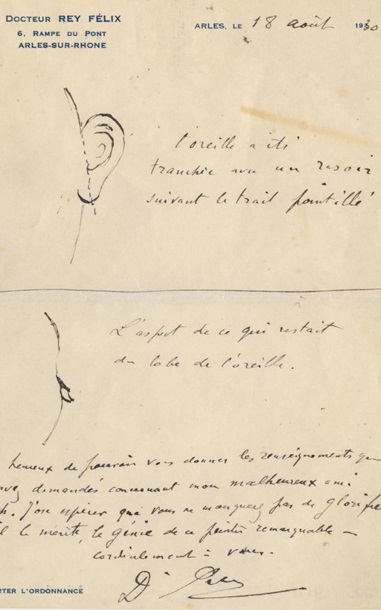 DOCTEUR REY FÉLIX
6, RAMPE DU PONT
ARLES-SUR-RHONE
ARLES, LE 18 août 1930
l'oreille a été
tranchée avec un rasoir
suivant le trait pointillé
L'aspect de ce qui restait
du lobe de l'oreille.
heureux de pouvoir vous donner les renseignements que
avez demandés concernant mon malheureux ami
h. J'ose espérer que vous ne manquerez pas de glorifier
il le mérite, le génie de ce peintre remarquable -
cordialement à vous.
Dr Rey
RTER L'ORDONNANCE